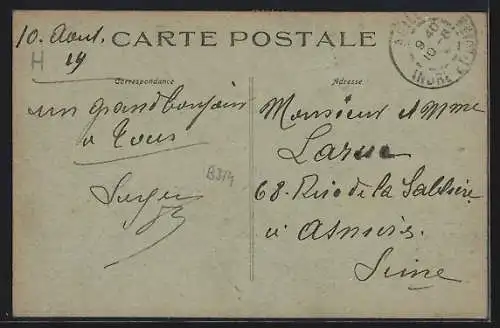 10. Aout.
19
H
CARTE POSTALE
Correspondance
un grand bonjour
a tous
B3/4
Adresse
Monsieur et Mme
Larue
68. Rue de la Sablière
à Asnières
Seine
9 40
10 - 8
INDRE